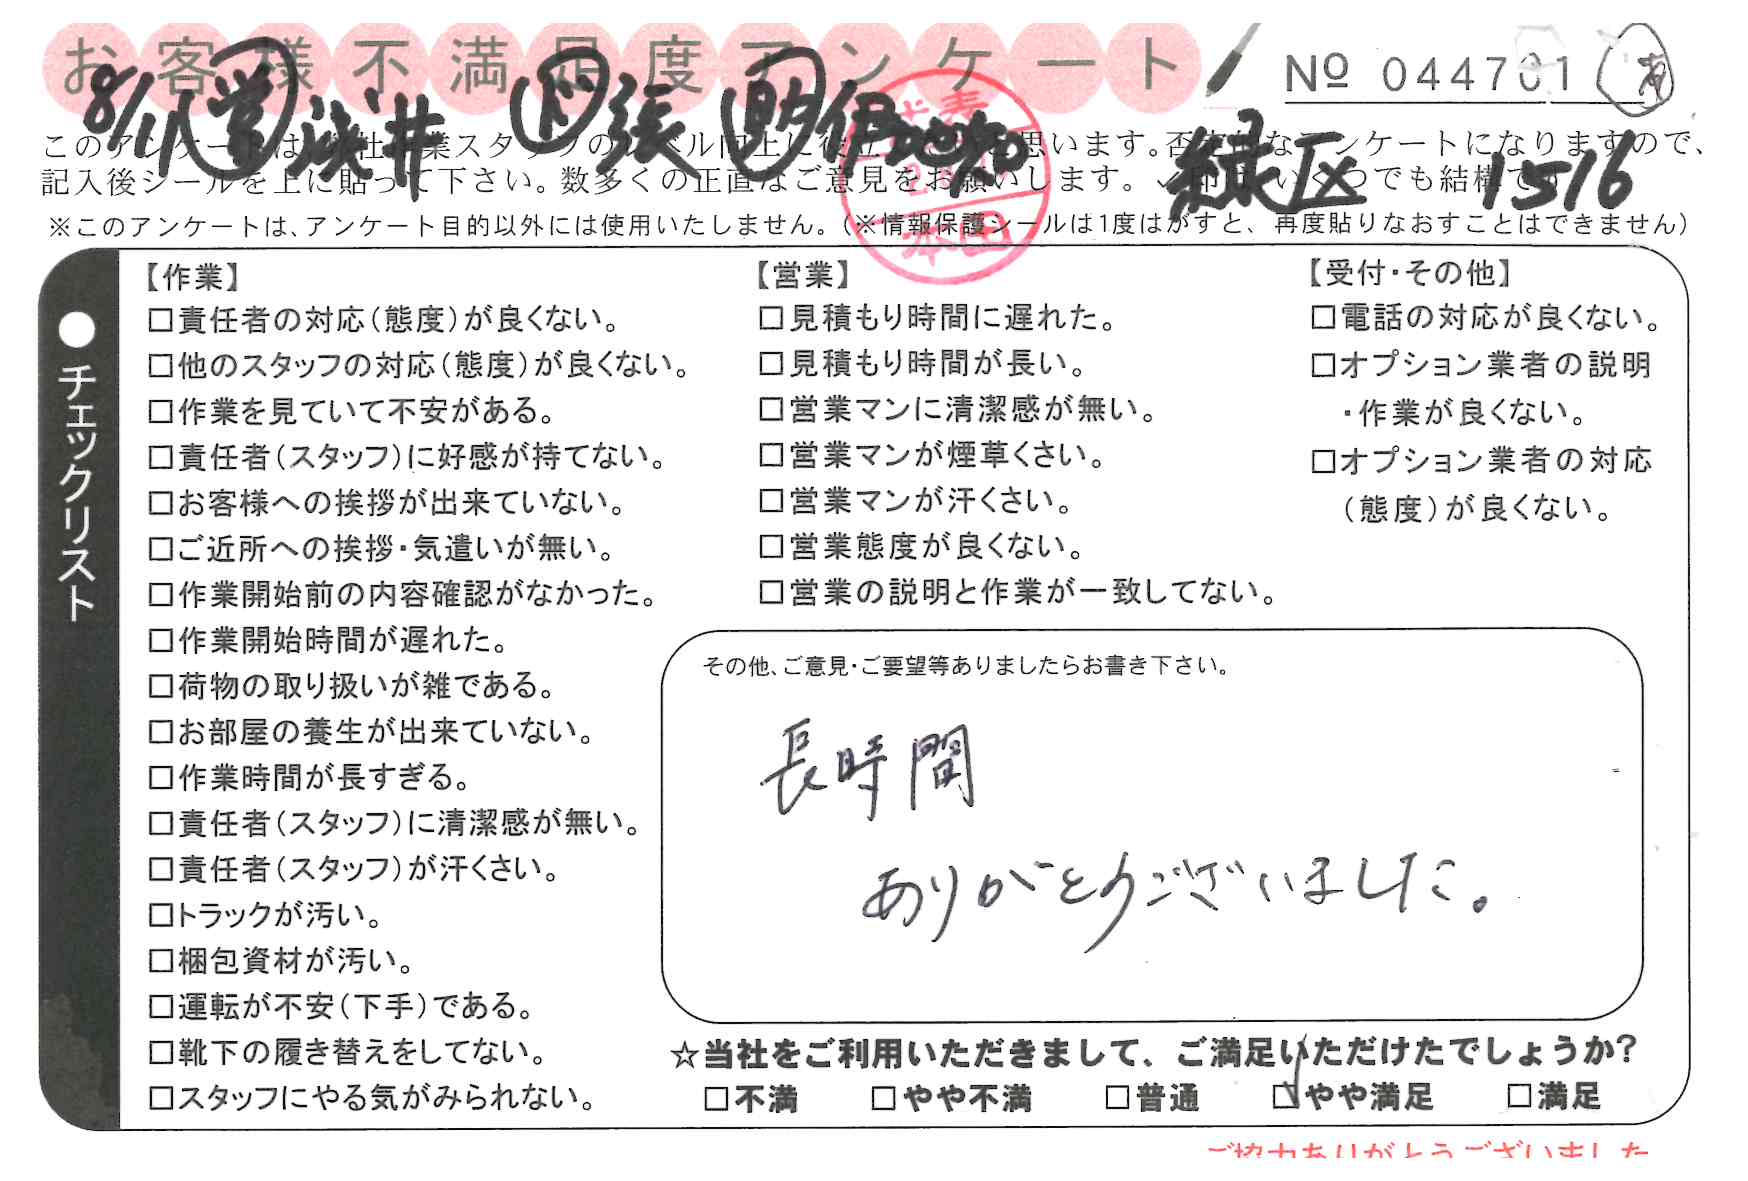 お客様不満足度アンケート
№ 044701 あ
8/11 営 浅井 ド 張 助 伊地知
緑区 1516
このアンケートは、当社作業スタッフのレベル向上に役立てたいと思います。否定的なアンケートになりますので、
記入後シールを上に貼って下さい。数多くの正直なご意見をお願いします。✓印は、いくつでも結構です。
※このアンケートは、アンケート目的以外には使用いたしません。(※情報保護シールは1度はがすと、再度貼りなおすことはできません)
本田
●チェックリスト
【作業】
□責任者の対応(態度)が良くない。
□他のスタッフの対応(態度)が良くない。
□作業を見ていて不安がある。
□責任者(スタッフ)に好感が持てない。
□お客様への挨拶が出来ていない。
□ご近所への挨拶・気遣いが無い。
□作業開始前の内容確認がなかった。
□作業開始時間が遅れた。
□荷物の取り扱いが雑である。
□お部屋の養生が出来ていない。
□作業時間が長すぎる。
□責任者(スタッフ)に清潔感が無い。
□責任者(スタッフ)が汗くさい。
□トラックが汚い。
□梱包資材が汚い。
□運転が不安(下手)である。
□靴下の履き替えをしてない。
□スタッフにやる気がみられない。
【営業】
□見積もり時間に遅れた。
□見積もり時間が長い。
□営業マンに清潔感が無い。
□営業マンが煙草くさい。
□営業マンが汗くさい。
□営業態度が良くない。
□営業の説明と作業が一致してない。
【受付・その他】
□電話の対応が良くない。
□オプション業者の説明
・作業が良くない。
□オプション業者の対応
(態度)が良くない。
その他、ご意見・ご要望等ありましたらお書き下さい。
長時間
ありがとうございました。
☆当社をご利用いただきまして、ご満足いただけたでしょうか?
□不満 □やや不満 □普通 ☑やや満足 □満足
ご協力ありがとうございました